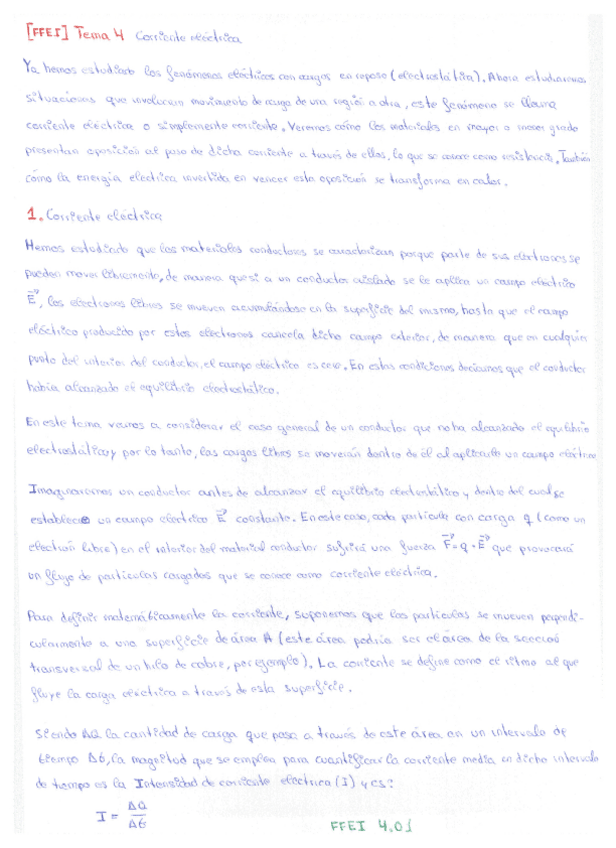 [FFEI] Tema 4 Corriente eléctrica
Ya hemos estudiado los fenómenos eléctricos con cargas en reposo (electrostática). Ahora estudiaremos
situaciones que involucran movimiento de carga de una región a otra, este fenómeno se llama
corriente eléctrica o simplemente corriente. Veremos cómo los materiales en mayor o menor grado
presentan oposición al paso de dicha corriente a través de ellos, lo que se conoce como resistencia. También
cómo la energía electrica invertida en vencer esta oposición se transforma en calor.
1. Corriente eléctrica
Hemos estudiado que los materiales conductores se caracterizan porque parte de sus electrones se
pueden mover libremente, de manera que si a un conductor aislado se le aplica un campo eléctrico
E⃗, los electrones libres se mueven acumulándose en la superficie del mismo, hasta que el campo
eléctrico producido por estos electrones cancela dicho campo exterior, de manera que en cualquier
punto del interior del conductor, el campo eléctrico es cero. En estas condiciones decíamos que el conductor
había alcanzado el equilibrio electrostático.
En este tema vamos a considerar el caso general de un conductor que no ha alcanzado el equilibrio
electrostático y por lo tanto, las cargas libres se moverán dentro de él al aplicarle un campo eléctrico
Imaginaremos un conductor antes de alcanzar el equilibrio electrostático y dentro del cual se
establece un campo eléctrico E⃗ constante. En este caso, cada partícula con carga q (como un
electrón libre) en el interior del material conductor sufrirá una fuerza F⃗=q·E⃗ que provocará
un flujo de partículas cargadas que se conoce como corriente eléctrica.
Para definir matemáticamente la corriente, suponemos que las partículas se mueven perpendi-
cularmente a una superficie de área A (este área podría ser el área de la sección
transversal de un hilo de cobre, por ejemplo). La corriente se define como el ritmo al que
fluye la carga eléctrica a través de esta superficie.
Siendo ΔQ la cantidad de carga que pasa a través de este área en un intervalo de
tiempo Δt, la magnitud que se emplea para cuantificar la corriente media en dicho intervalo
de tiempo es la Intensidad de corriente eléctrica (I) y es:
I = ΔQ/Δt
FFEI 4.01